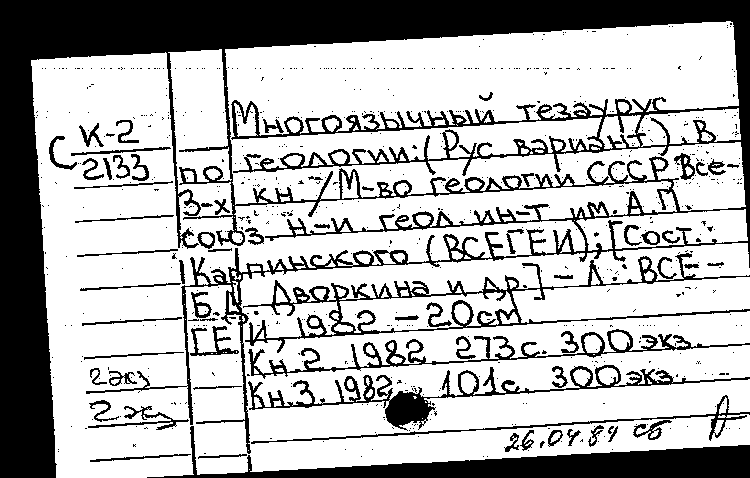 К-2
2133
Многоязычный тезаурус
по геологии: (Рус. вариант). В
3-х кн. / М-во геологии СССР. Все-
союз. н.-и. геол. ин-т им. А. П.
Карпинского (ВСЕГЕИ); [Сост.:
Б.Д. Дворкина и др.] - Л.: ВСЕ-
ГЕИ, 1982. - 20 cm.
Кн. 2. 1982. 273 с. 300 экз.
Кн. 3. 1982. 101 с. 300 экз.
2 экз
2 эк
26.04.84 сб